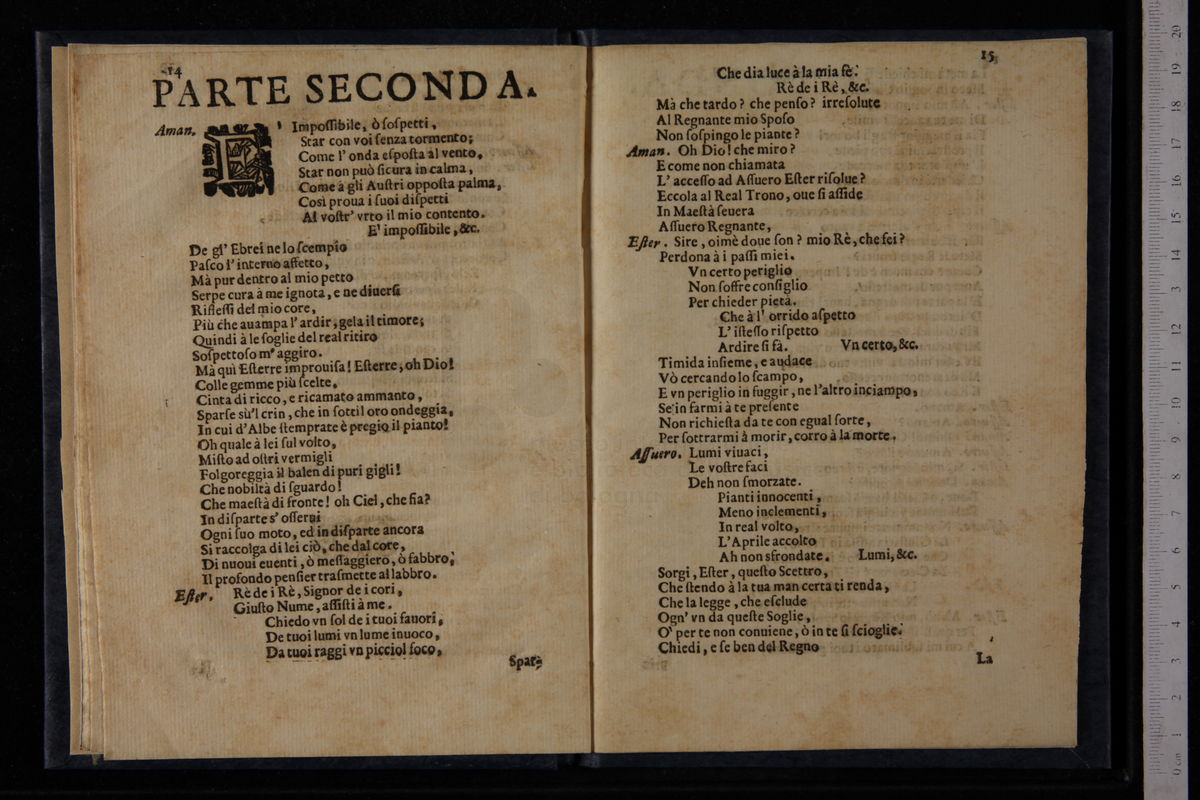 14
PARTE SECONDA.
Aman. E' Impoſſibile, ò ſoſpetti,
Star con voi ſenza tormento;
Come l' onda eſpoſta al vento,
Star non può ſicura in calma,
Come à gli Auſtri oppoſta palma,
Così proua i ſuoi diſpetti
Al voſtr' vrto il mio contento.
E' impoſſibile, &c.
De gl' Ebrei ne lo ſcempio
Paſco l' interno affetto,
Mà pur dentro al mio petto
Serpe cura à me ignota, e ne diuerſi
Rifleſſi del mio core,
Più che auampa l' ardir, gela il timore;
Quindi à le ſoglie del real ritiro
Soſpettoſo m' aggiro.
Mà quì Eſterre improuiſa! Eſterre, oh Dio!
Colle gemme più ſcelte,
Cinta di ricco, e ricamato ammanto,
Sparſe sù'l crin, che in ſottil oro ondeggia,
In cui d'Albe ſtemprate è pregio il pianto!
Oh quale à lei ſul volto,
Miſto ad oſtri vermigli
Folgoreggia il balen di puri gigli!
Che nobiltà di ſguardo!
Che maeſtà di fronte! oh Ciel, che ſia?
In diſparte s' oſſerui
Ogni ſuo moto, ed in diſparte ancora
Si raccolga di lei ciò, che dal core,
Di nuoui euenti, ò meſſaggiero, ò fabbro,
Il profondo penſier traſmette al labbro.
Eſter. Rè de i Rè, Signor de i cori,
Giuſto Nume, aſſiſti à me.
Chiedo vn ſol de i tuoi fauori,
De tuoi lumi vn lume inuoco,
Da tuoi raggi vn picciol foco,
Spar-
15
Che dia luce à la mia fè.
Rè de i Rè, &c.
Mà che tardo? che penſo? irreſolute
Al Regnante mio Spoſo
Non ſoſpingo le piante?
Aman. Oh Dio! che miro?
E come non chiamata
L' acceſſo ad Aſſuero Eſter riſolue?
Eccola al Real Trono, oue ſi aſſide
In Maeſtà ſeuera
Aſſuero Regnante,
Eſter. Sire, oimè doue ſon? mio Rè, che fei?
Perdona à i paſſi miei.
Vn certo periglio
Non ſoffre conſiglio
Per chieder pietà.
Che à l' orrido aſpetto
L' iſteſſo riſpetto
Ardire ſi fà. Vn certo, &c.
Timida inſieme, e audace
Vò cercando lo ſcampo,
E vn periglio in fuggir, ne l'altro inciampo,
Se in farmi à te preſente
Non richieſta da te con egual ſorte,
Per ſottrarmi à morir, corro à la morte.
Aſſuero. Lumi viuaci,
Le voſtre faci
Deh non ſmorzate.
Pianti innocenti,
Meno inclementi,
In real volto,
L'Aprile accolto
Ah non sfrondate. Lumi, &c.
Sorgi, Eſter, queſto Scettro,
Che ſtendo à la tua man certa ti renda,
Che la legge, che eſclude
Ogn' vn da queſte Soglie,
O' per te non conuiene, ò in te ſi ſcioglie.
Chiedi, e ſe ben del Regno
La